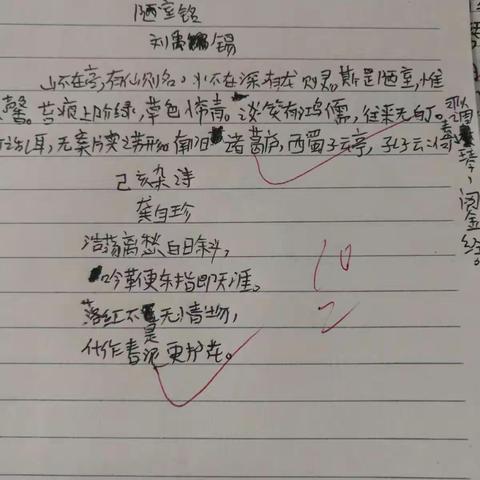 陋室铭
刘禹锡
山不在高,有仙则名,水不在深,有龙则灵,斯是陋室,惟
馨。苔痕上阶绿,草色帘青。谈笑有鸿儒,往来无白丁。
调素琴,阅金经。
耳,无案牍之劳形。南阳诸葛庐,西蜀子云亭,孔子云:何
己亥杂诗
龚自珍
浩荡离愁白日斜,
吟革便东指即天涯。
落红不是无情物,
化作春泥更护花。
10
2